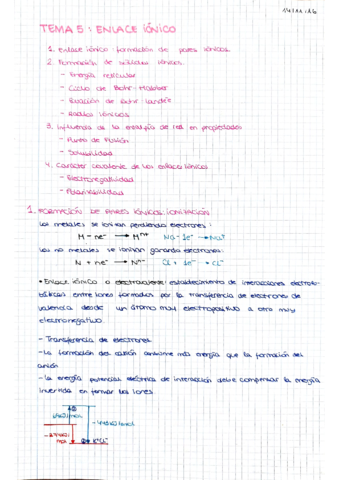 14/11/16
TEMA 5: ENLACE IÓNICO
1. Enlace iónico: formación de pares iónicos
2. Formación de sólidos iónicos
- Energía reticular
- Ciclo de Born-Haber
- Ecuación de Born-Landé
- Radios iónicos
3. Influencia de la energía de red en propiedades
- Punto de fusión
- Solubilidad
4. Carácter covalente de los enlaces iónicos
- Electronegatividad
- Polarizabilidad
1. FORMACIÓN DE PARES IÓNICOS: IONIZACIÓN
Los metales se ionizan perdiendo electrones:
M - ne⁻ → Mⁿ⁺ Na - 1e⁻ → Na⁺
Los no metales se ionizan ganando electrones:
N + ne⁻ → Nⁿ⁻ Cl + 1e⁻ → Cl⁻
• Enlace iónico o electrovalente: establecimiento de interacciones electros-
táticas entre iones formados por la transferencia de electrones de
valencia desde un átomo muy electropositivo a otro muy
electronegativo.
- Transferencia de electrones
- La formación del catión consume más energía que la formación del
anión
- La energía potencial eléctrica de interacción debe compensar la energía
invertida en formar los iones